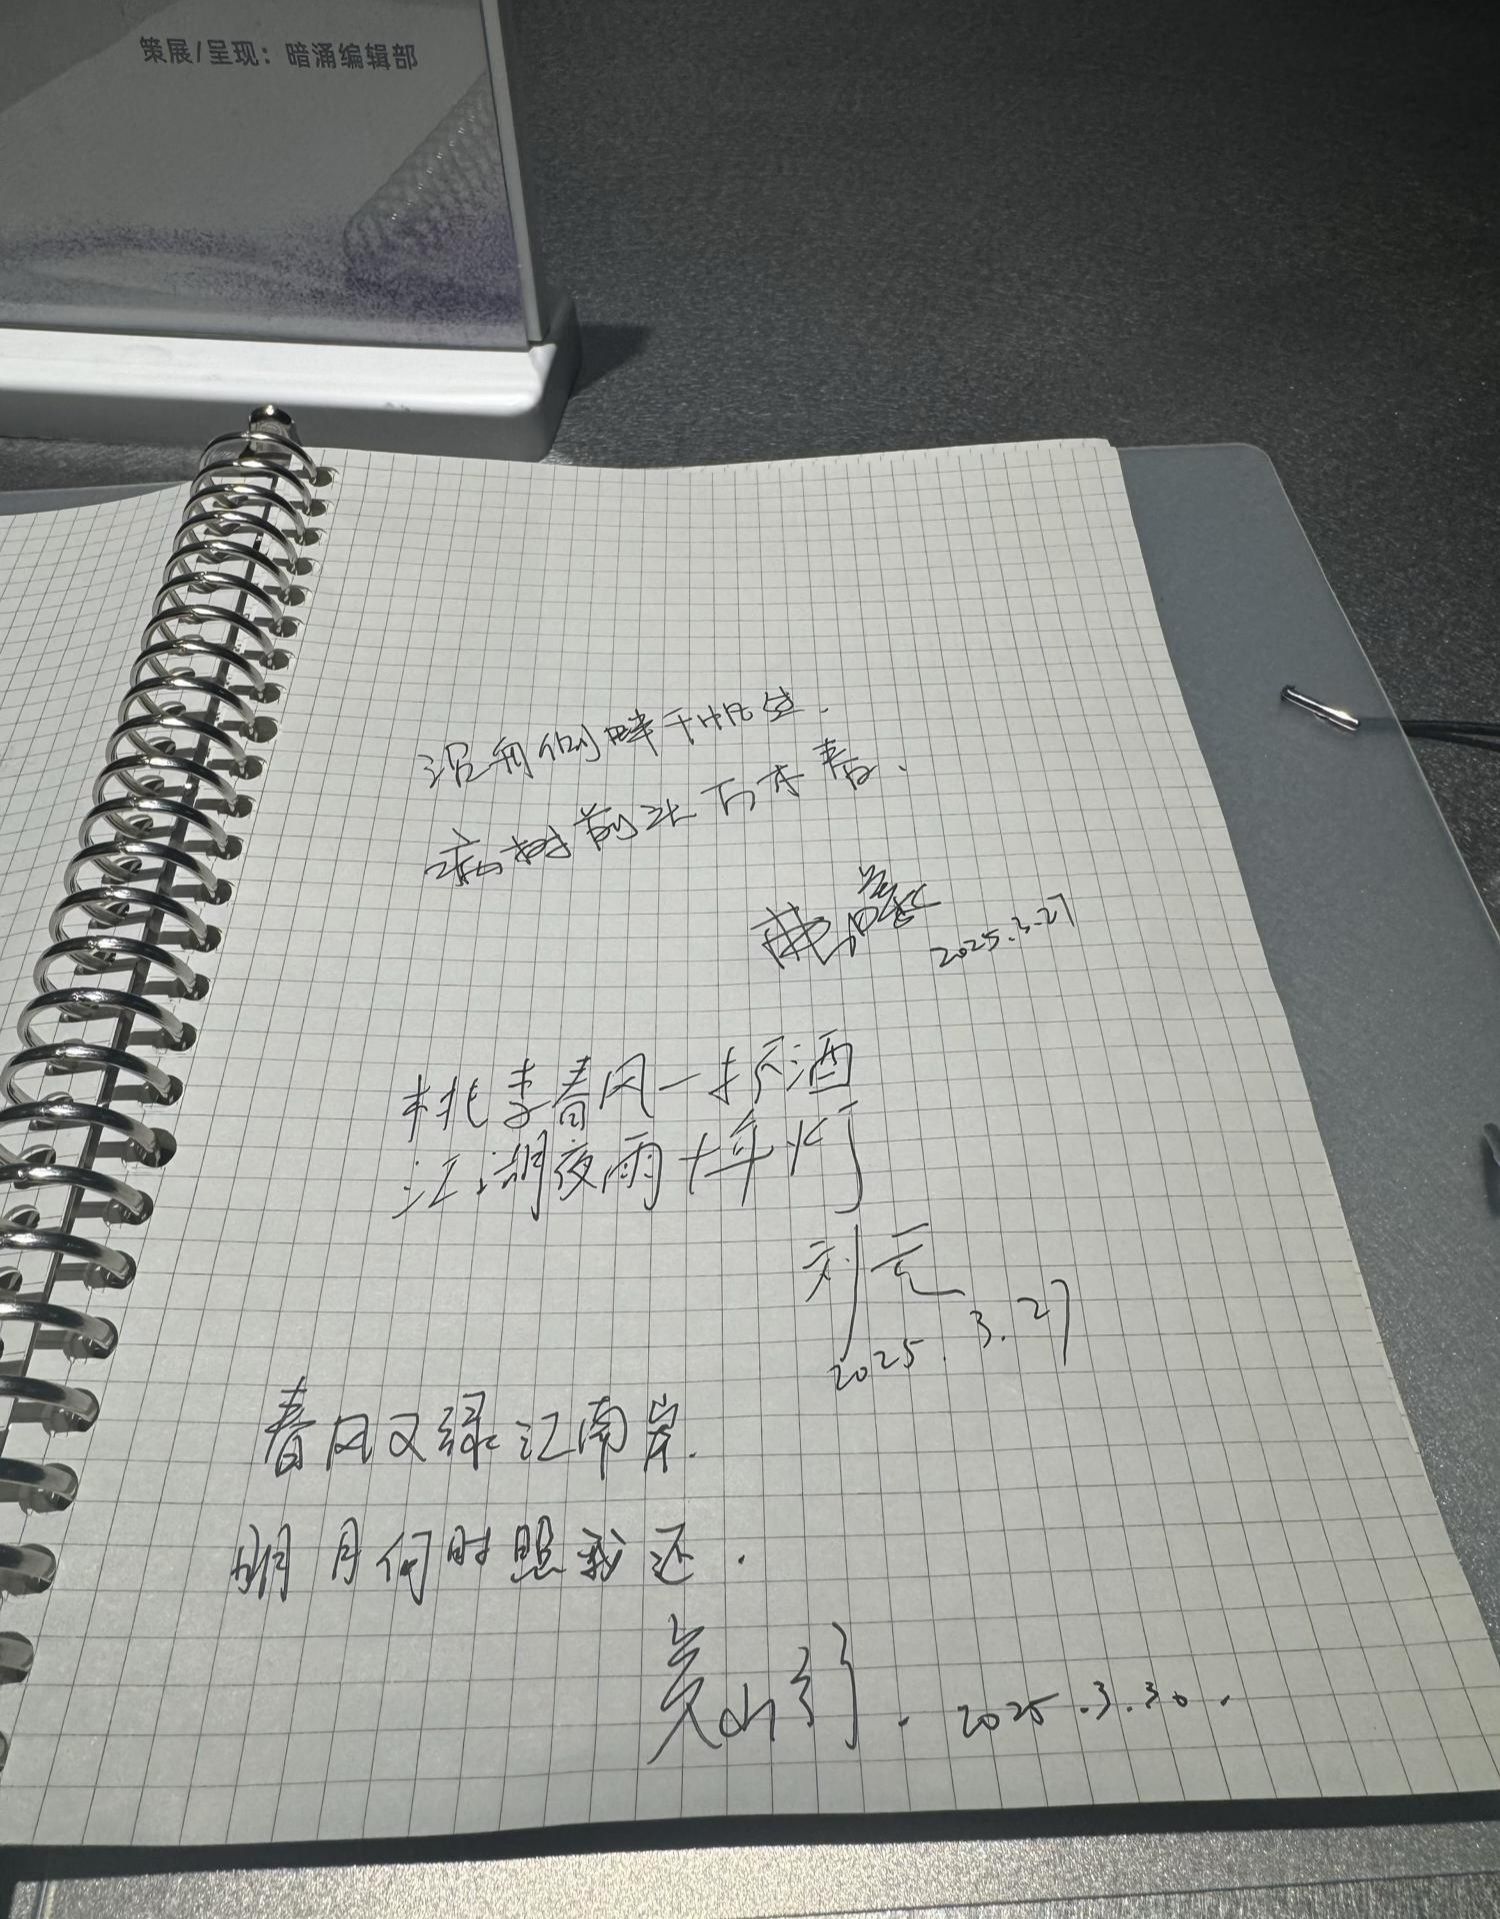 策展/呈现：暗涌编辑部
沉舟侧畔千帆过.
病树前头万木春.
2025.3.27
桃李春风一杯酒
江湖夜雨十年灯
刘元
2025.3.27
春风又绿江南岸.
明月何时照我还.
2025.3.30.